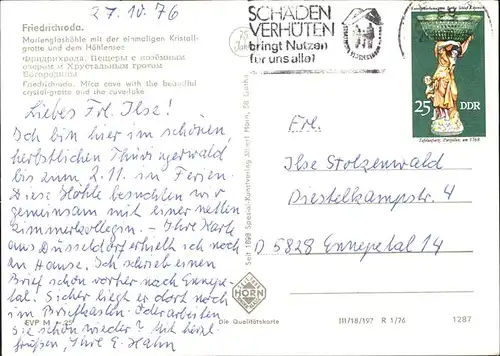 27.10.76
Friedrichroda.
Marienglashöhle mit der einmaligen Kristall-
grotte und dem Höhlensee
Фридрихрода. Пещеры с подземным
озером и Хрустальным гротом
Friedrichroda. Mica cave with the beautiful
crystal-grotto and the cave-lake
Liebes Frl. Ilse!
Ich bin hier im schönen,
herbstlichen Thüringerwald
bis zum 2.11. in Ferien.
Diese Höhle besuchten wir
gemeinsam mit einer netten
Zimmerkollegin. – Ihre Karte
aus Düsseldorf erhielt ich noch
zu Hause. Ich schrieb einen
Brief schon vorher nach Ennepe-
tal. Sicher liegt er dort noch
im Briefkasten. Oder arbeiten
sie schon wieder? Mit herzl.
Grüßen, Ihre E. Hahn
EVP M
Seit 1898 Spezial-Kunstverlag Albert Horn, 58 Gotha
HORN
Die Qualitätskarte
SCHADEN
VERHÜTEN
bringt Nutzen
für uns alle!
58
25 DDR
Frl.
Ilse Stolzenwald
Diestelkampstr. 4
D 5828 Ennepetal 14
III/18/197 R 1/76 1287